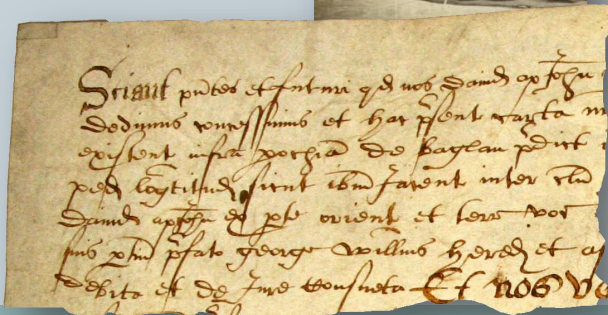 Sciant pntes et futuri qd nos dauid ap John
dedimus concessimus et hac psent carta
existent infra pochia de Baglan pdict
ped longitud sicut ibm jacent inter
dauid ap John ex pte orient et terr voc
pfato george Willms hered et
debita et de jure consueta Et nos